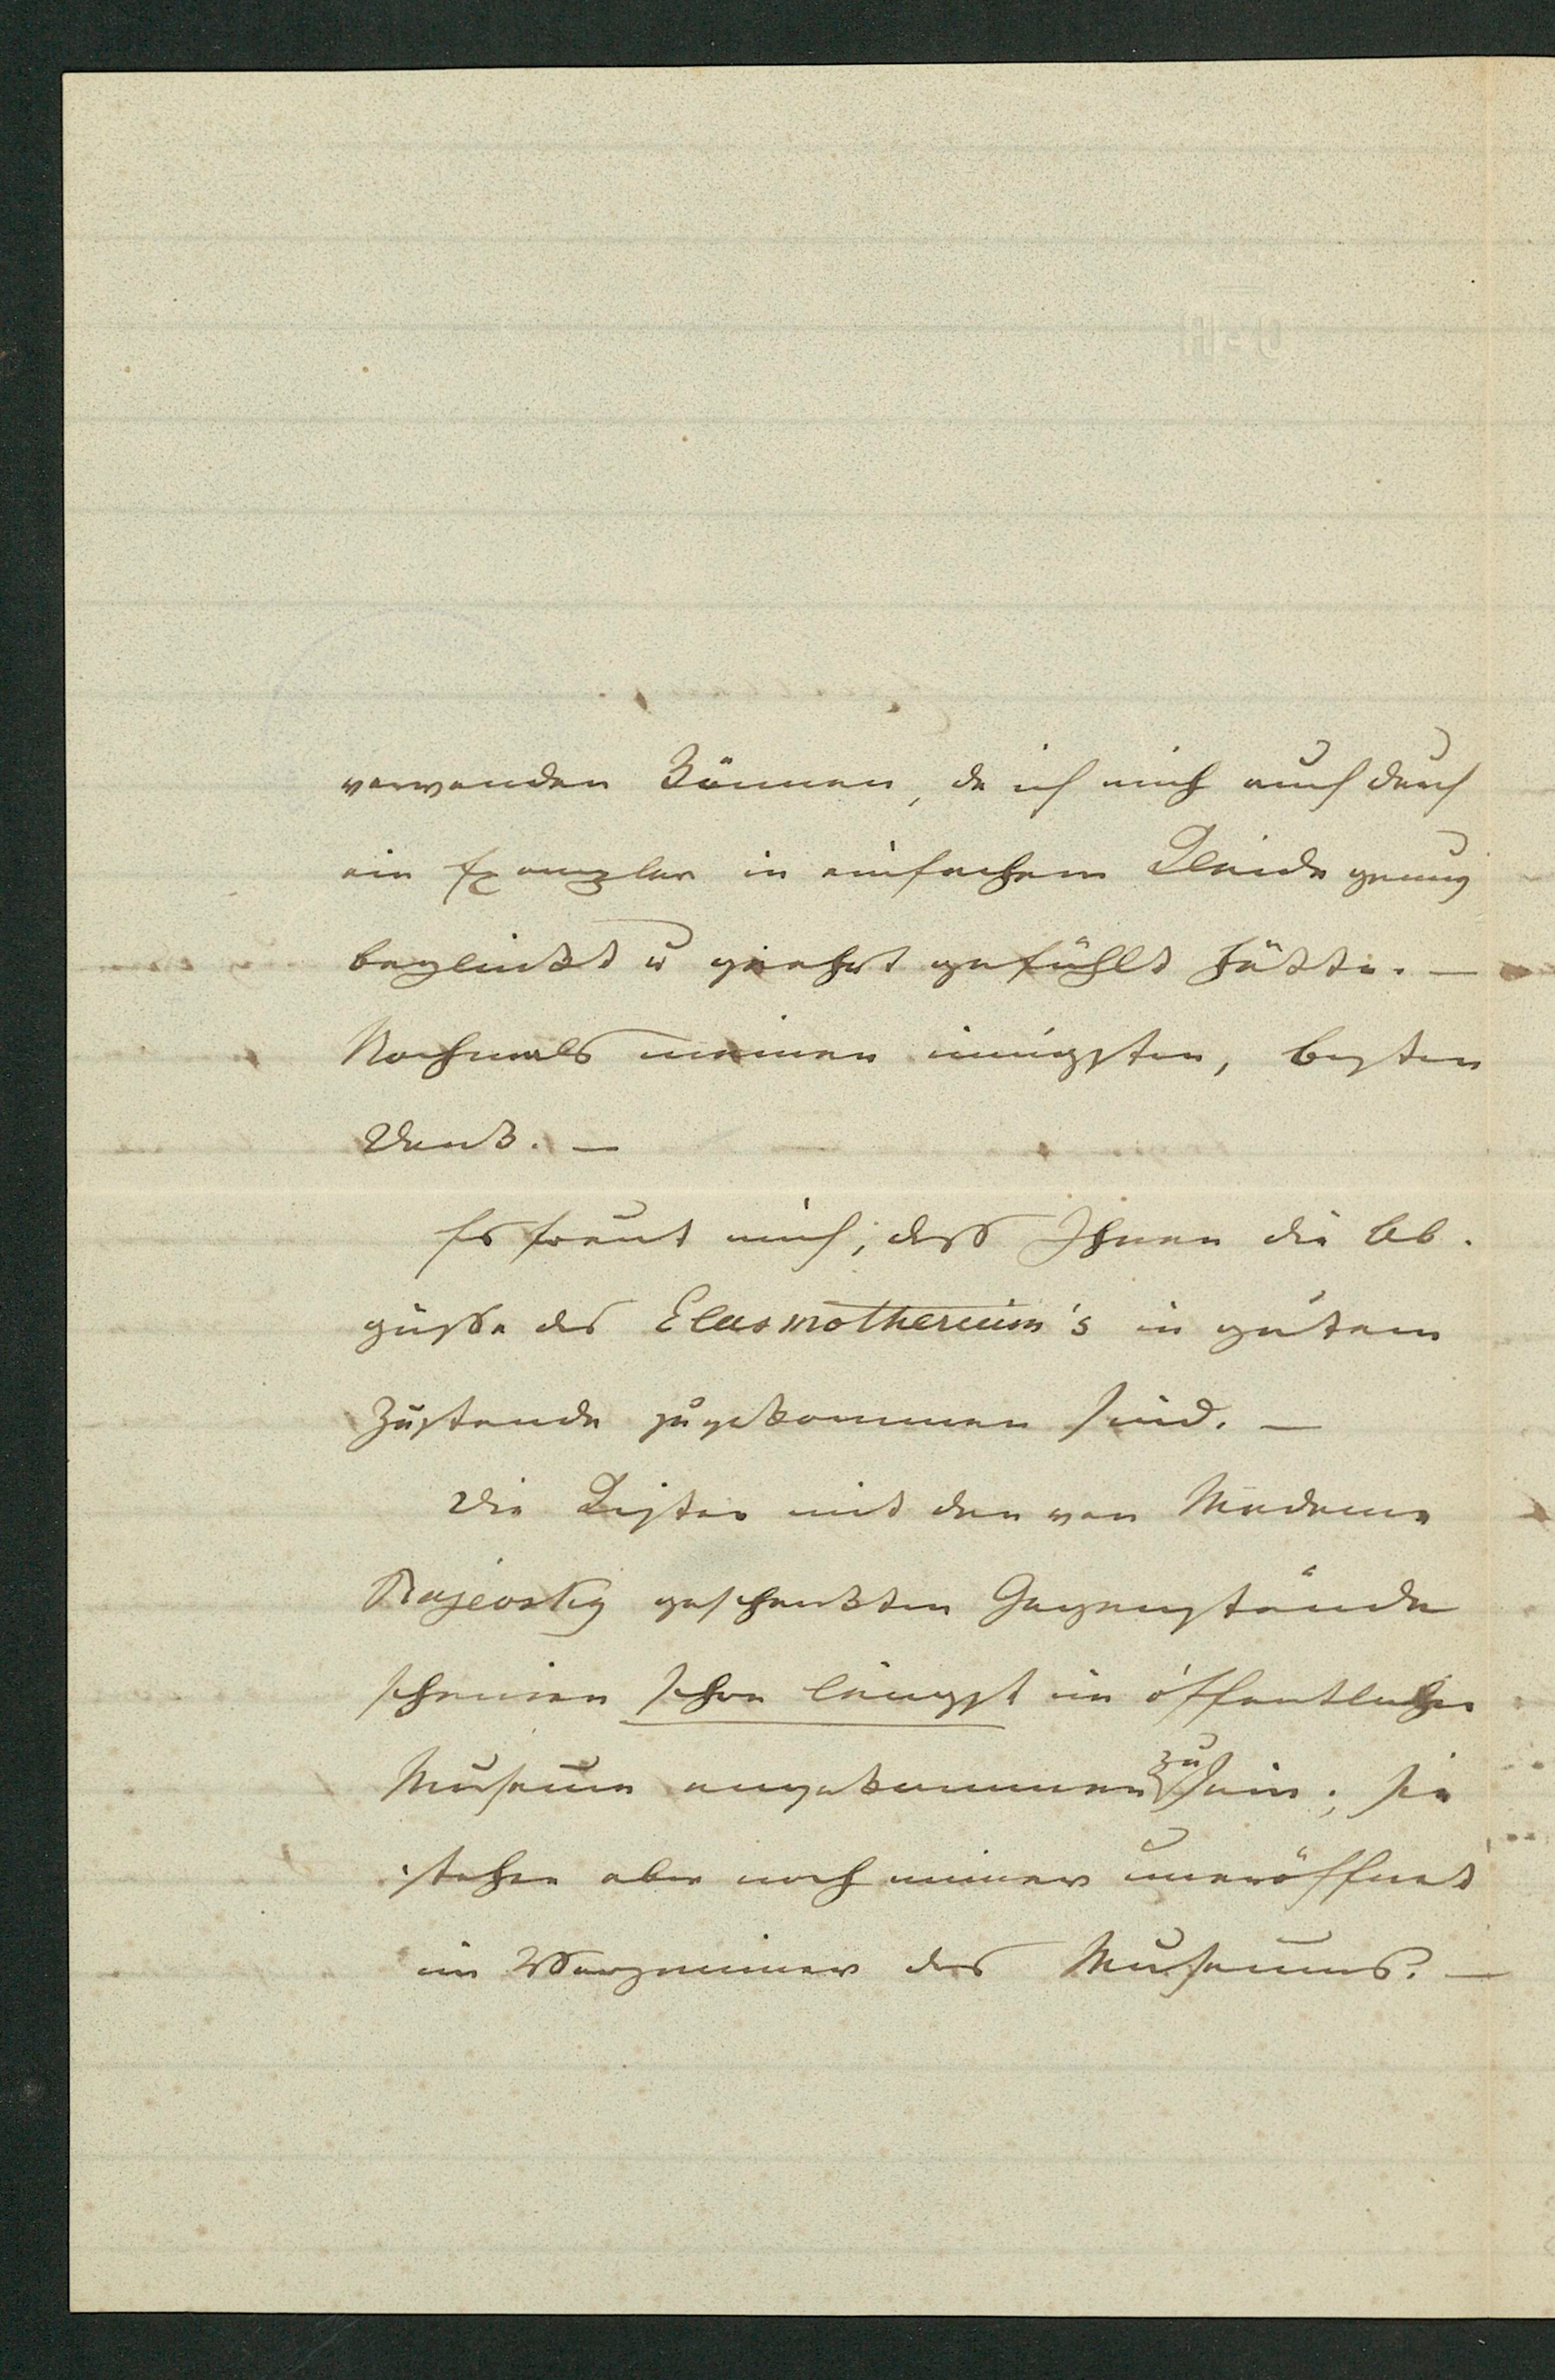 verwenden können, da ich mich auch durch
ein Exemplar in einfachem Kleide genug
beglückt u geehrt gefühlt hätte. —
Nochmals meinen innigsten, besten
Dank. —
Es freut mich, dass Ihnen die Ab-
güsse des Elasmotherium's in gutem
Zustande zugekommen sind. —
Die Kisten mit den von Madame
Rajevsky geschenkten Gegenstände
scheinen schon längst im öffentlichen
Museum angekommen zu sein; sie
stehen aber noch immer uneröffnet
im Vorzimmer des Museums. —